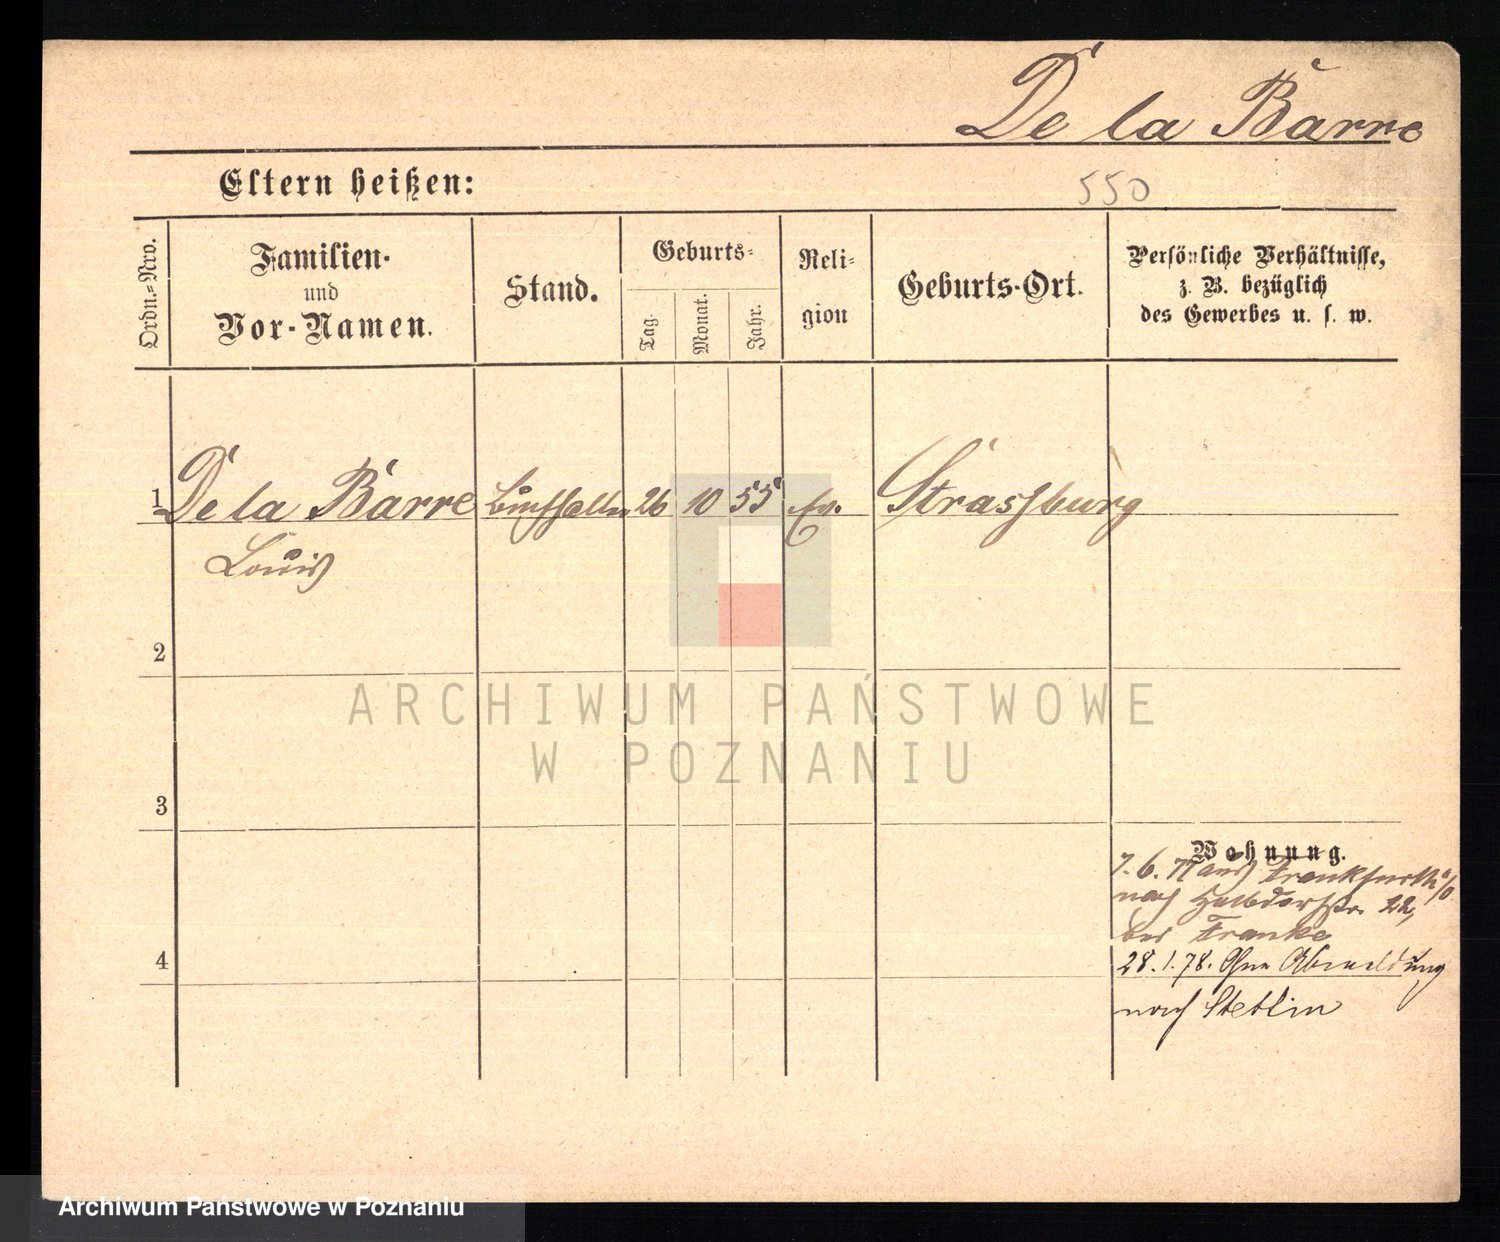 De la Barre
Eltern heißen:
550
Ordn.=Nro.
Familien-
und
Vor-Namen.
Stand.
Geburts-
Tag.
Monat.
Jahr.
Reli-
gion
Geburts-Ort.
Persönliche Verhältnisse,
z. B. bezüglich
des Gewerbes u. s. w.
1 De la Barre 26 10 55 Ev. Strassburg
Louis
2
ARCHIWUM PAŃSTWOWE
W POZNANIU
3
Wohnung.
7. 6. 77 aus Frankfurth a/O
nach 22,
bei Franke
4
28. 1. 78. Ohne Abmeldung
nach Stettin
Archiwum Państwowe w Poznaniu